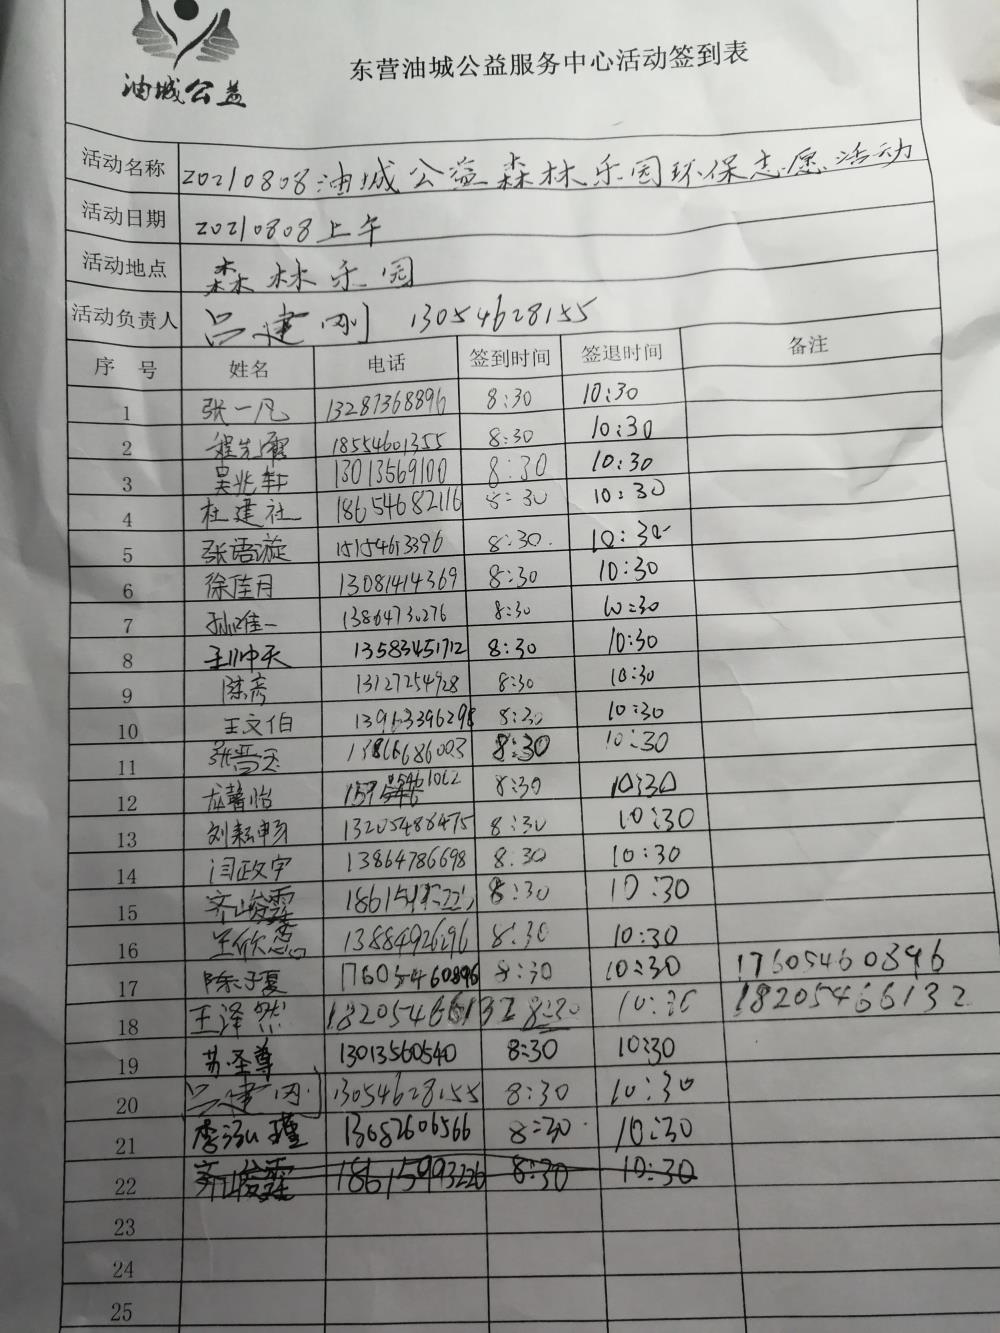 油城公益
东营油城公益服务中心活动签到表
活动名称 20210808油城公益森林乐园环保志愿活动
活动日期 20210808上午
活动地点 森林乐园
活动负责人 吕建刚 13054628155
序 号 姓名 电话 签到时间 签退时间 备注
1 张一凡 13287368896 8:30 10:30
2 程先霈 18554601355 8:30 10:30
3 吴兆轩 13013569100 8:30 10:30
4 杜建社 18654682116 8:30 10:30
5 张语漩 15154613396 8:30 10:30
6 徐佳月 13081414369 8:30 10:30
7 孙唯一 13864730276 8:30 10:30
8 王帅天 13583451712 8:30 10:30
9 陈彦 13127254928 8:30 10:30
10 王文伯 13963396298 8:30 10:30
11 13866686003 8:30 10:30
12 尤馨怡 8:30 10:30
13 刘耘畅 13205486475 8:30 10:30
14 闫政宇 13864786698 8:30 10:30
15 齐峻霆 8:30 10:30
16 王欣悥 13884926296 8:30 10:30
17 陈子夏 17605460896 8:30 10:30 17605460896
18 王泽然 18205466132 8:30 10:30 18205466132
19 苏圣尊 13013560540 8:30 10:30
20 吕建刚 13054628155 8:30 10:30
21 李泓瑾 13682606566 8:30 10:30
22 齐峻霆 18615993226 8:30 10:30
23
24
25